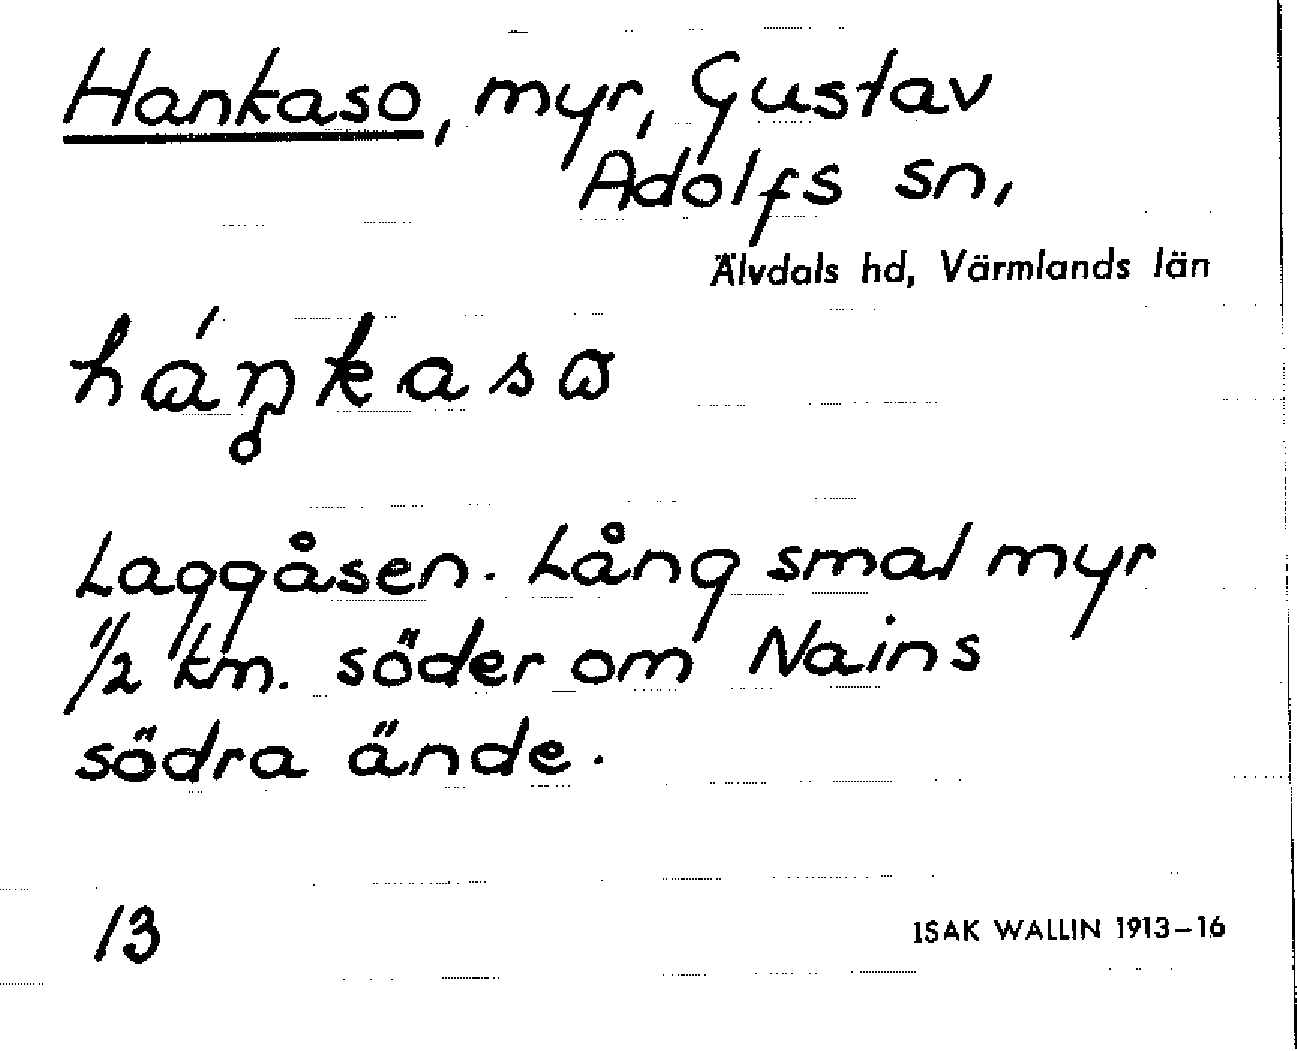 Hankaso, myr, Gustav
Adolfs sn,
Älvdals hd, Värmlands län
háŋ̥kasɷ
Laggåsen. Lång smal myr
1/2 km. söder om Nains
södra ände.
13
ISAK WALLIN 1913-16